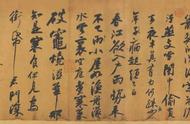 汙燕支雪闇中偷負
去夜半真有力何殊病少
年子病起頭已白
春江欲入戶雨勢來
不已雨小屋如漁舟濛濛水
雲裏空庖煮寒菜
破竈燒濕葦那
知是寒食但見烏
銜帋君門深